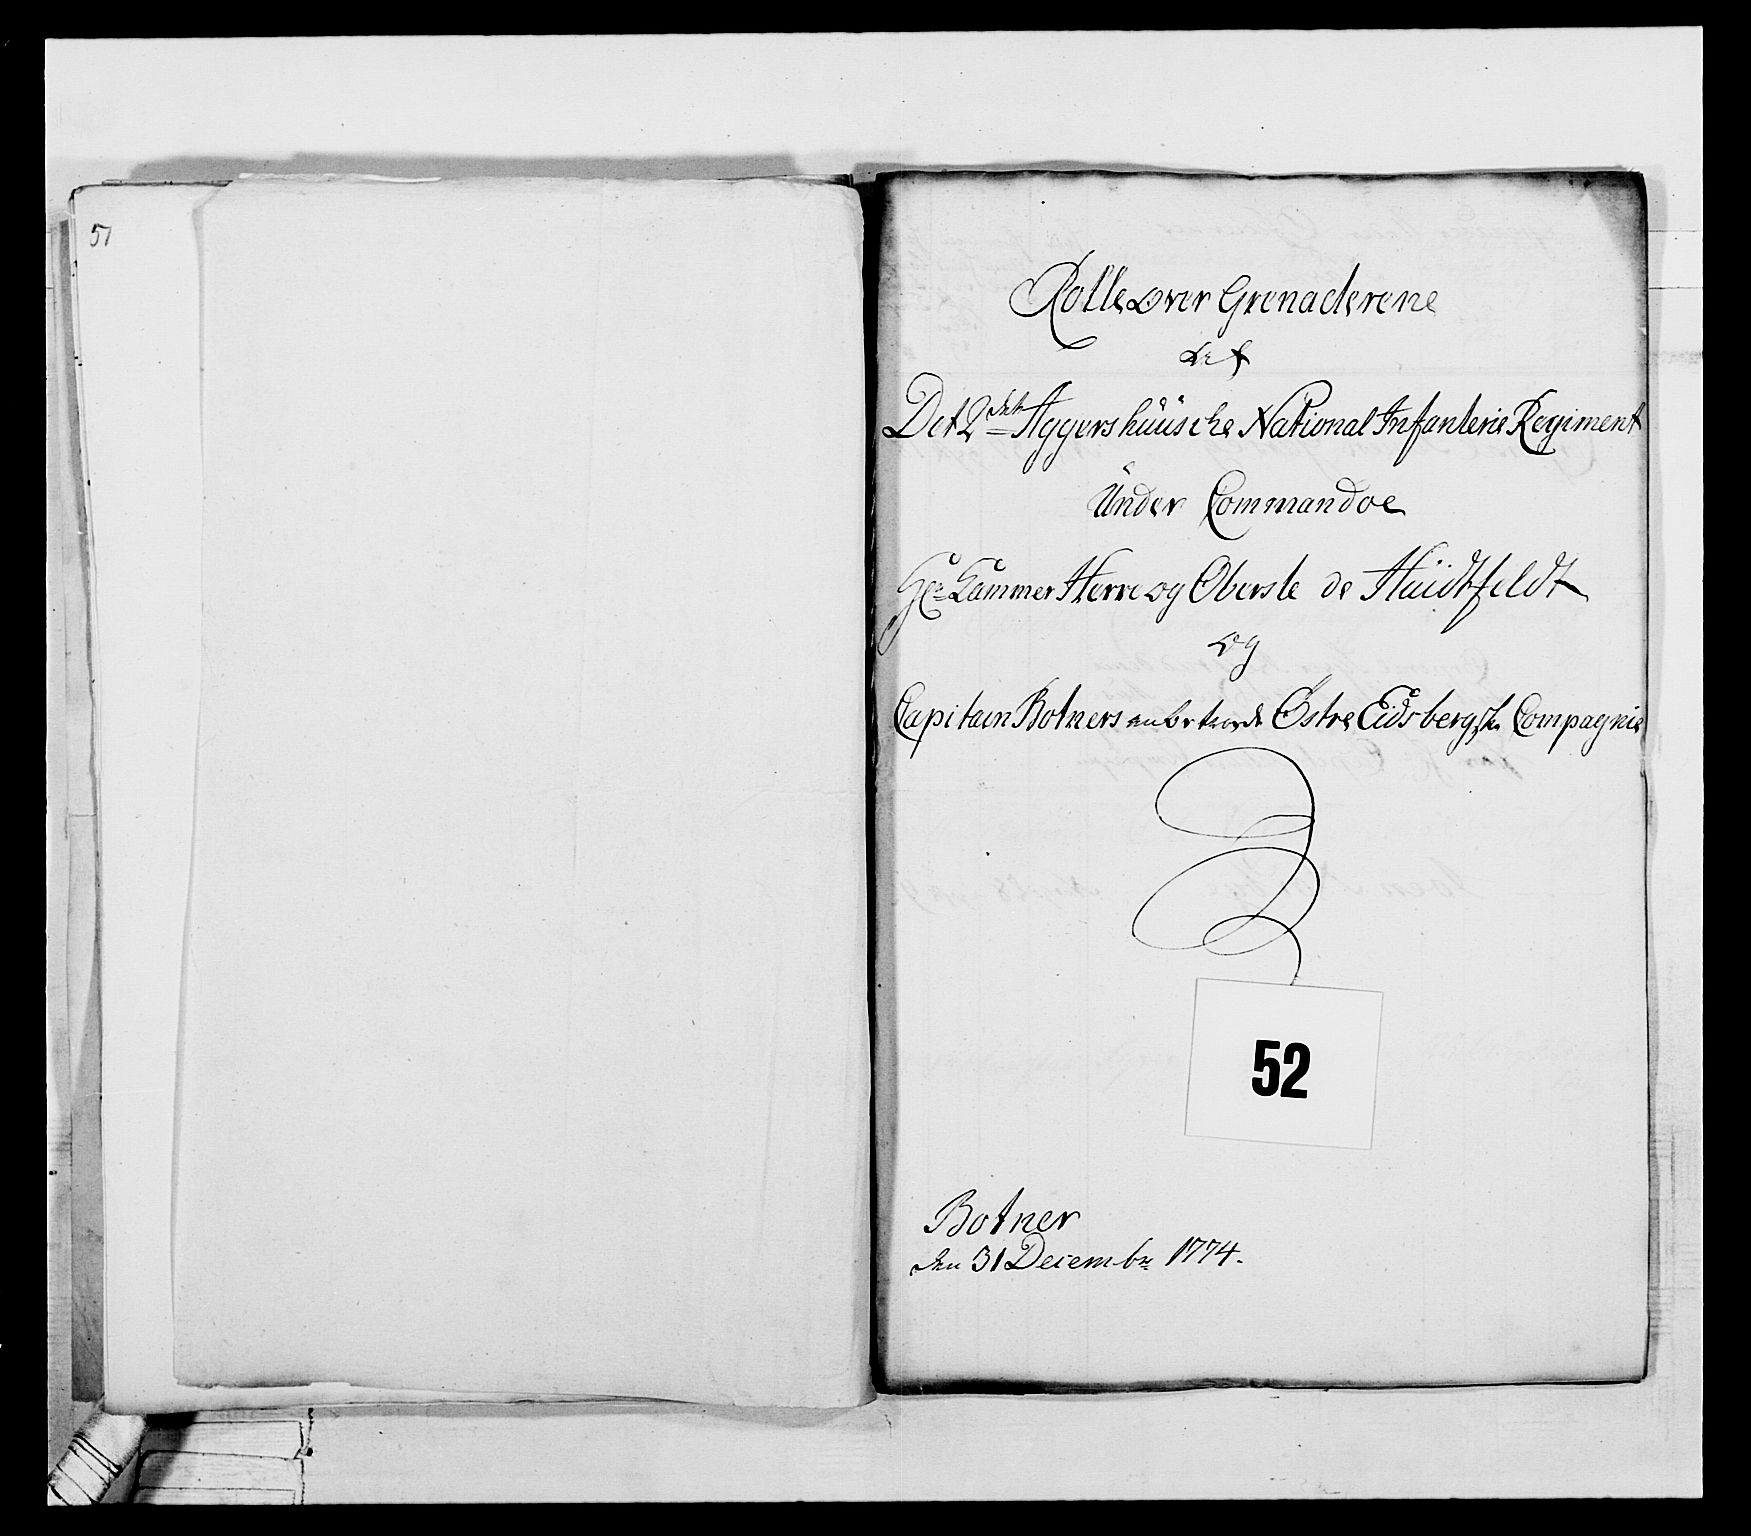 51
Rolle over Grenaderene
ved
Det 2det Aggershuusche National Infanterie Regiment
Under Commandoe
Hr Kammer Herre og Oberste de Huidtfeldt
og
Capitain Botners anbetroede Østre Eidsbergske Compagnie
52
Botner
den 31 Decembr 1774.